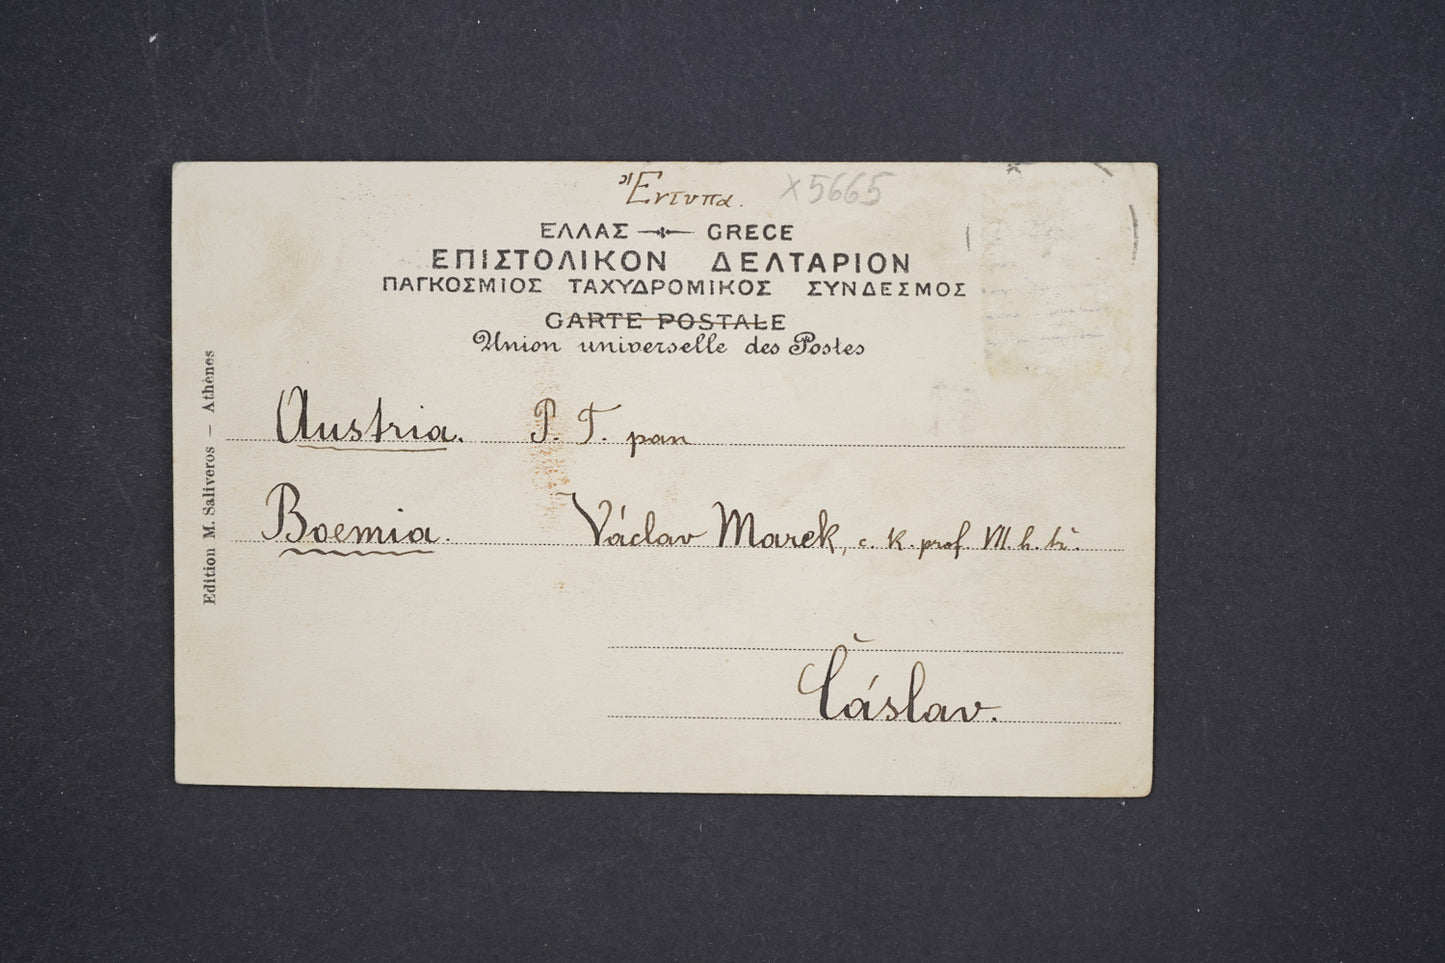 Ἔντυπα.
x5665
ΕΛΛΑΣ GRECE
ΕΠΙΣΤΟΛΙΚΟΝ ΔΕΛΤΑΡΙΟΝ
ΠΑΓΚΟΣΜΙΟΣ ΤΑΧΥΔΡΟΜΙΚΟΣ ΣΥΝΔΕΣΜΟΣ
CARTE POSTALE
Union universelle des Postes
Edition M. Saliveros — Athènes
Austria. P. T. pan
Boemia. Václav Marek, c. k. prof VII. h. tř.
Čáslav.